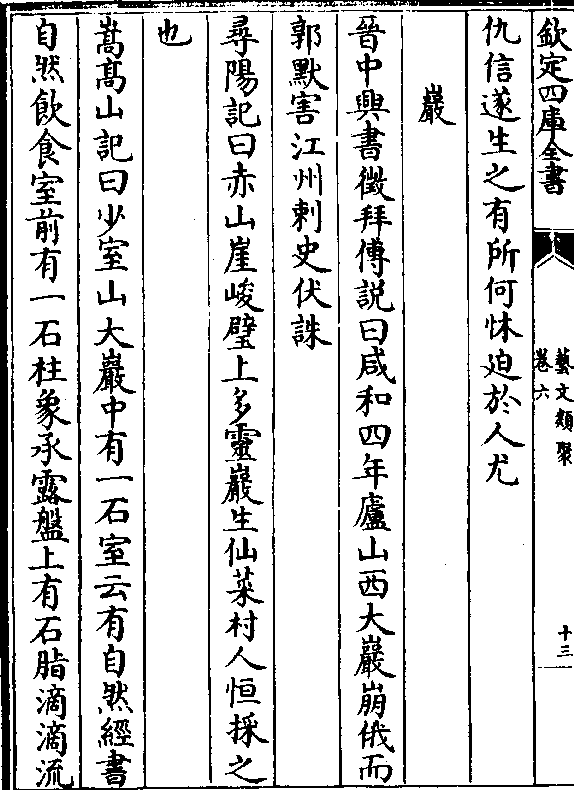 欽定四庫全書
藝文類聚
卷六
十三
仇信遂生之有所何怵廹於人尤
巖
晉中興書徵拜傅説曰咸和四年廬山西大巖崩俄而
郭默害江州刺史伏誅
尋陽記曰赤山崖峻壁上多靈巖生仙菜村人恒採之
也
嵩髙山記曰少室山大巖中有一石室云有自然經書
自然飲食室前有一石柱象承露盤上有石脂滴滴流